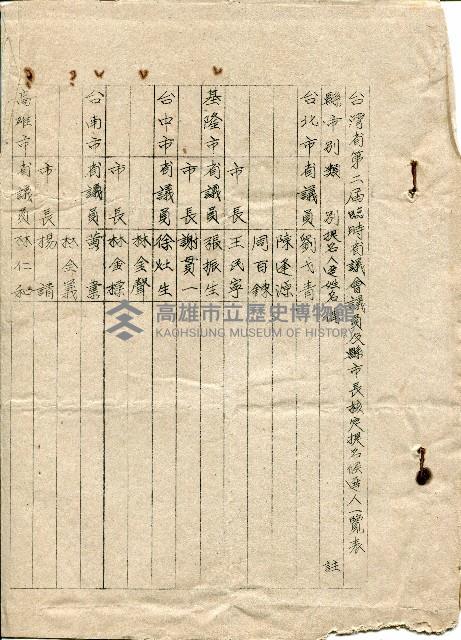 台灣省第二屆臨時省議會議員及縣市長核定提名候選人一覽表
縣市別 類別 提名人選姓名 備註
台北市 省議員 劉戈青
陳逢源
周百鍊
市長 王民寧
基隆市 省議員 張振生
市長 謝貫一
台中市 省議員 徐灶生
林金聲
市長 林金標
台南市 省議員 黃業
林全義
市長 楊請
高雄市 省議員 林仁和
高雄市立歷史博物館
KAOHSIUNG MUSEUM OF HISTORY